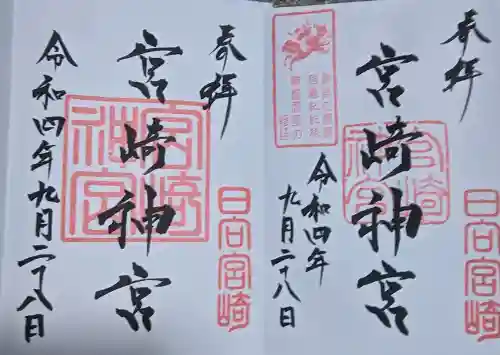 奉拝
宮崎神宮
日向宮崎
宮崎神宮
令和四年九月二十八日
奉拝
宮崎神宮
日向宮崎
令和四年
九月二十八日